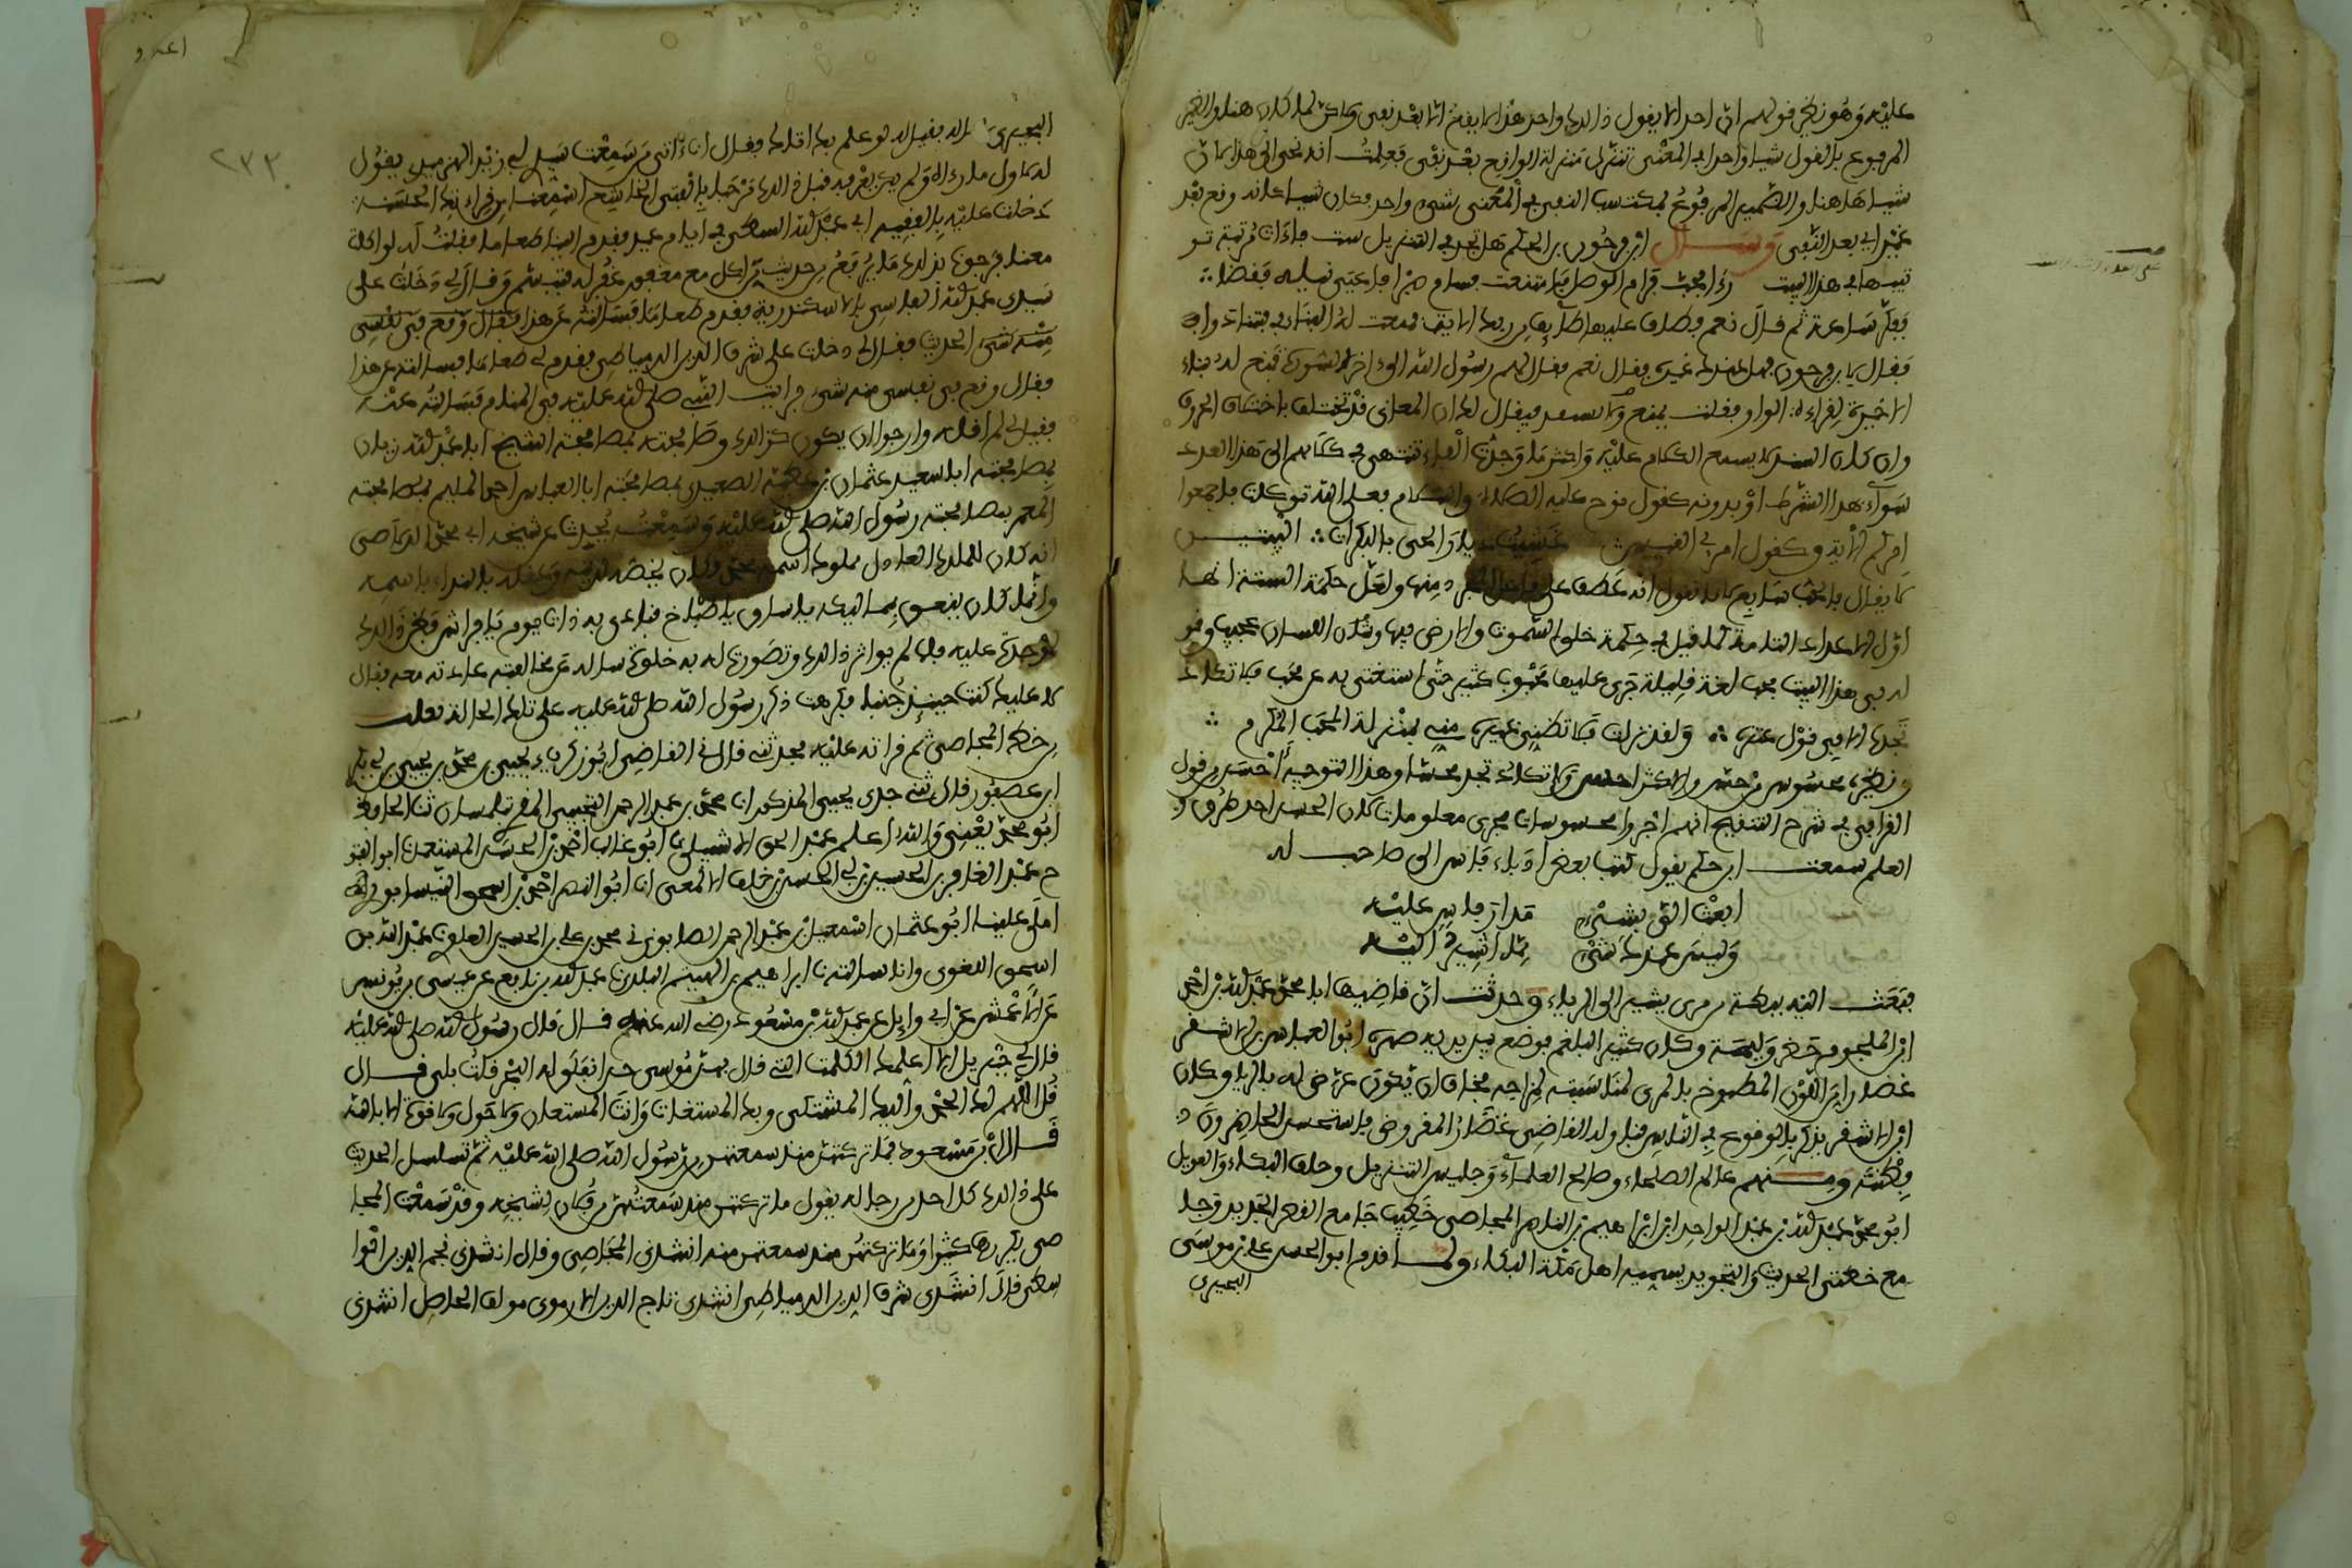 عليه وهو نظير قولهم ان احدا لا يقول ذلك واحد هذا لا يقع الا بعد نفي ولاكن لما كان هنا والضمير
المرفوع بالقول شيئا واحدا في المعنى تنزل منزلة الواقع بعد نفي فعلمت انه نحى الى هذا لان
شيا هاهنا والضمير المرفوع المكتسب النفي في المعنى شيء واحد فكان شيا كانه وقع بعد
غير اي بعد النفي وسال ابن فرحون بن الحكم هل تجد في التنزيل ست فاءات مرتبة تر
تيبها في هذا البيت راى فحب فرام الوصل فامتنعت فسام صبرا فاعيى نيله فقضا
ففكر ساعة ثم قال نعم فطاف عليها طائف من ربك الاية فمنعت له البناء في فتنادوا
فقال يا بن فرحون فهل عندك غيره فقال نعم فقال لهم رسول الله الى اخر السورة فمنع له بناء
الاخيرة لقراءة الواو فقلت امنع ولا تسند فيقال لك ان المعاني قد تختلف باختلاف الحروف
وان كان السند لا يسمع الكلام عليه واكثر ما وجدت الفاء تنتهي في كلامهم الى هذا العدد
سواء بهذا الشرط او بدونه كقول نوح عليه الصلاة والسلام فعلى الله توكلت فاجمعوا
امركم الاية وكقول امرئ القيس غشيت ديار الحي بالبكرات البيتين
لا يقال فالحب سابع لانا نقول انه عطف على عاقل المجرد منها ولعل حكمة الستة انها
اول الاعداد التامة كما قيل في حكمة خلق السموت والارض فيها وشان اللسان عجيب وقو
له في هذا البيت فحب لغة قليلة جرى عليها محبوب كثير حتى استغنى به عن محب فلا تكاد
تجده الا في قول عنترة ولقد نزلت فلا تظني غيره مني بمنزلة المحب المكرم
ونظيره محسوس من حس والاكثر احس ولا تكاد تجد محسا وهذا التوجيه احسن من قول
القرافي في شرح التنقيح انهم اجروا محسوسات مجرى معلومات لان الحس احد طرق
العلم سمعت ابن حكم يقول كتب بعض ادباء فاس الى صاحب له
ابعث الي بشيء مدار فاس عليه
وليس عندك شيء مما اشير اليه
فبعث اليه ببطة من مري يشير الى الرياء وحدثت ان قاضيها ابا محمد عبد الله بن احمد
ابن الملجوم حضر وليمة وكان كثير البلغم فوضع بين يديه صهره ابو العباس بن الاشقر
غضارا من اللون المطبوخ بالمري لمناسبته لمزاجه فخاف ان يكون عرض له بالرياء وكان
ابن الاشقر يذكر بالوقوع في الناس فناوله القاضي غضار المقروض فاستحسن الحاضرون
فطنته ومنهم عالم الصلحاء وصالح العلماء وجليس التنزيل وحلف البكاء والعويل
ابو محمد عبد الله بن عبد الواحد ابن ابراهيم بن الناصر المجاصي خطيب جامع القصر الجديد وجا
مع خطتي الحديث والتجويد يسميه اهل مكة البكاء ولما قدم ابو الحسن علي بن موسى
البحيري
البحيري سال فقيل له لو علم بك اتاك فقال انا اتي من سمعت سيدي ابا زيد الهزميري يقول
له لاول ما راه ولم يكن يعرفه قبل ذلك مرحبا بالفتى الخاشع اسمعنا من قراءتك الحسنة
دخلت عليه بالفقيه ابي عبد الله السطي في ايام عيد فقدم الينا طعاما فقلت له لو اكلت
معنا فرجونا بذلك ما يرفع من حديث من اكل مع مغفور غفر له فتبسم وقال لي دخلت على
سيدي عبد الله الفاسي بالاسكندرية فقدم طعاما فسالته عن هذا فقال وقع في نفسي
منه شيء الحديث فقال لي دخلت على شرف الدين الدمياطي فقدم لي طعاما فسالته عن هذا
فقال وقع في نفسي منه شيء فرايت النبي صلى الله عليه في المنام فسالته عنه
فقال لي لم اقله وارجوا ان يكون كذلك وصافحته بمصافحته الشيخ ابا عبد الله زيان
بمصافحته ابا سعيد عثمان بن عطية الصعيدي بمصافحته ابا العباس احمد الملثم بمصافحته
المعمر بمصافحته رسول الله صلى الله عليه وسمعته يحدث عن شيخه ابي محمد الدلاصي
انه كان للملك العادل مملوك اسمه محمد فكان يخصه لدينه وعقله بالنداء باسمه
وانما كان ينعق بمماليكه يا ساق يا طباخ فنادى به ذات يوم يا فراش فظن ذلك
لموجدة عليه فلما لم ير اثر ذلك وتصورت له به خلوة ساله عن مخالفته عادته معه فقال
لا عليك كنت حينئذ جنبا فكرهت ذكر رسول الله صلى الله عليه على تلك الحالة نقلت
من خط المجاصي ثم قراته عليه فحدثني قال في القاضي ابو زكرياء يحيى بن محمد بن يحيى بن ابي بكر
ابن عصفور قال ثني جدي يحيى المذكور انا محمد بن عبد الرحمن التجيبي المقري بتلمسان ثنا الحافظ
ابو محمد يعني والله اعلم عبد الحق الاشبيلي انا ابو غالب احمد بن الحسن المستعمل ابو الفتو
ح عبد الغافر بن الحسين بن ابي الحسن بن خلف الالمعي انا ابو النصر احمد بن اسحق النيسابوري
املى علينا ابو عثمان اسمعيل بن عبد الرحمن الصابوني في محمد بن علي بن الحسين العلوي عبد الله بن
اسحق اللغوي وانا سالته نا ابراهيم بن الهيثم البلدي نا عبد الله بن نافع عن عيسى بن يونس
عن الاعمش عن ابي وايل عن عبد الله بن مسعود رضي الله عنهم قال قال رسول الله صلى الله عليه
قال لي جبريل الا اعلمك الكلمت التي قال بهن موسى حين انفلق له البحر قلت بلى قال
قل اللهم لك الحمد واليك المشتكى وبك المستغاث وانت المستعان ولا حول ولا قوة الا بالله
قال ابن مسعود فما تركتهن منذ سمعتهن من رسول الله صلى الله عليه ثم تسلسل الحديث
على ذلك كل احد من رجاله يقول ما تركتهن منذ سمعتهن من فلان لشيخه وقد سمعت المجا
صي يكررها كثيرا وما تركتهن منذ سمعتهن منه انشدني المجاصي وقال انشدني نجم الدين الوا
سطي قال انشدني شرف الدين الدمياطي انشدني تاج الدين الارموي مولف الحاصل انشدني
٢٣٣